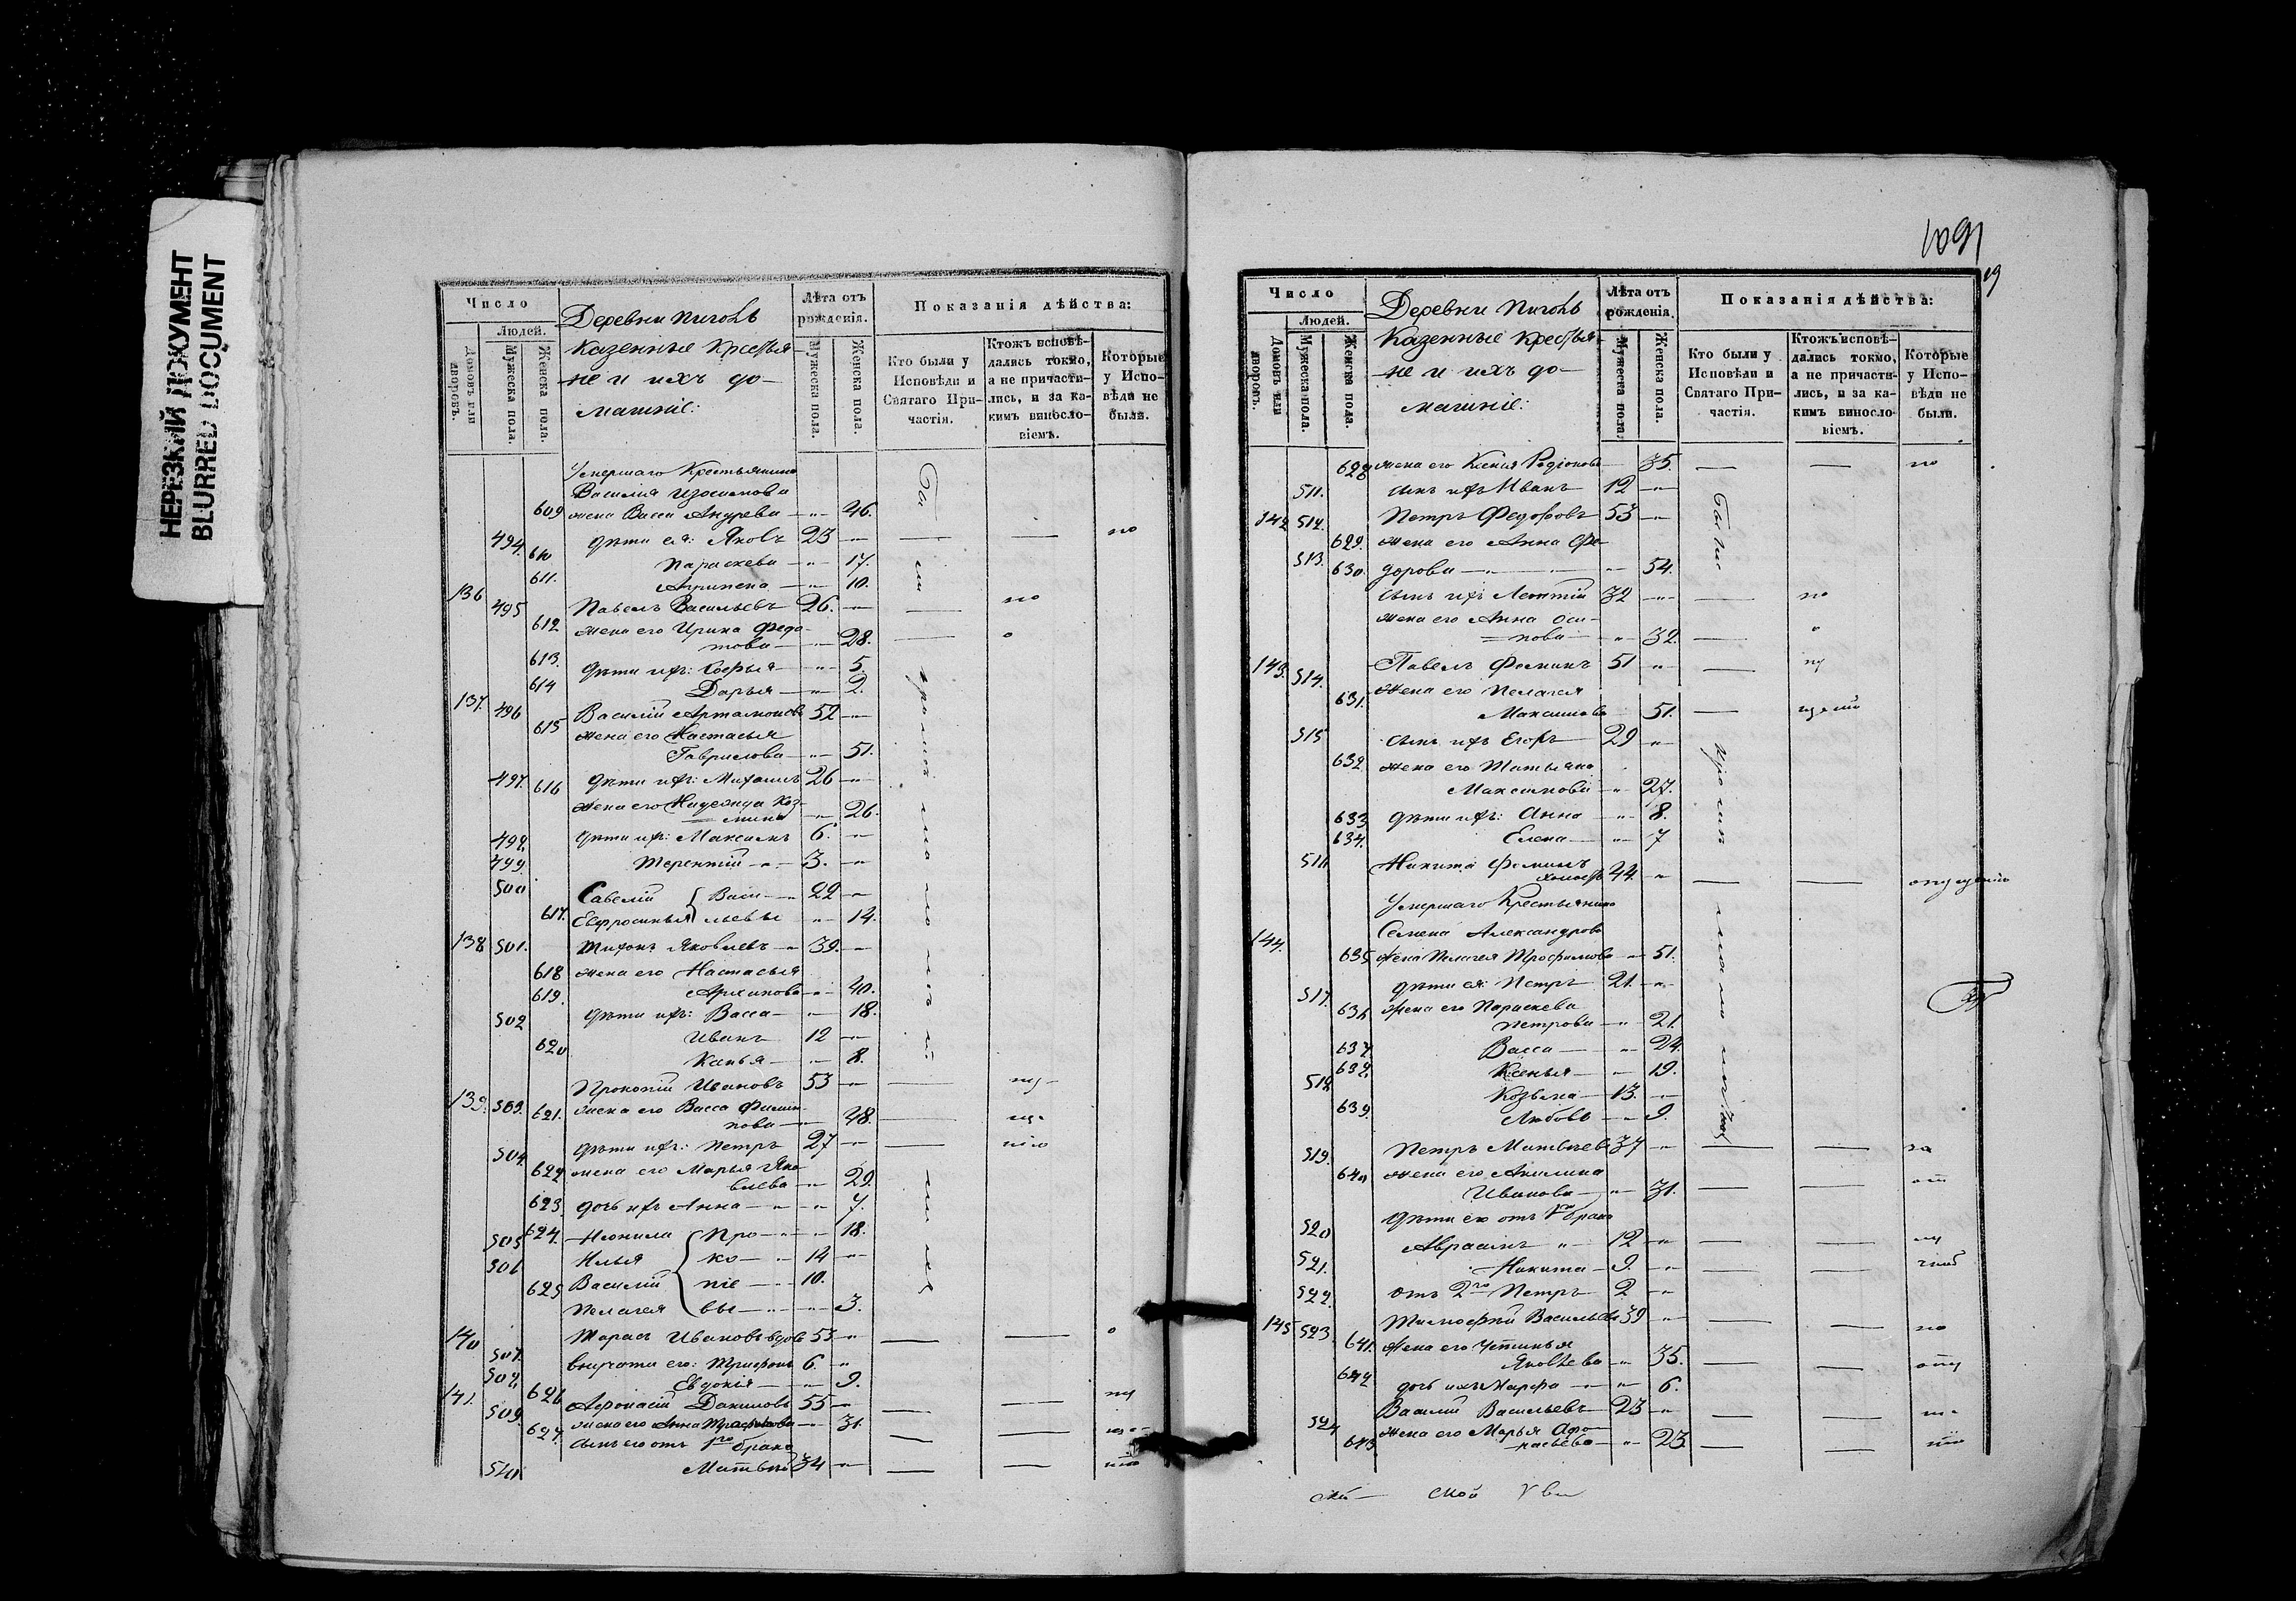 НЕРЕЗКИЙ ДОКУМЕНТ
BLURRED DOCUMENT
Число
Людей.
Домовъ или дворовъ.
Мужеска пола.
Женска пола.
Деревни
Казенные Крестья-
не и ихъ до-
машніе:
Лѣта отъ рожденія.
Мужеска пола.
Женска пола.
Показанія дѣйства:
Кто были у Исповѣди и Святаго При-частія.
Ктожъ исповѣ-дались токмо, а не причасти-лись, и за ка-кимъ винословіемъ.
Которые у Испо-вѣди не были.
Умершаго Крестьянина
Василія
609 жена Васса Андреева 46.
494. дѣти ея: Яковъ 23
610 Параскева 17.
611. Агрипена 10.
136 495 Павелъ Васильевъ 26.
612 жена его Ирина Федо-
това 28.
613. дѣти ихъ: Софья 5.
614 Дарья 2.
137. 496 Василій Артамоновъ 52
615 жена его Настасья
Гаврилова 51.
497. дѣти ихъ: Михаилъ 26
616 жена его Надежда Коз-
мина 26.
498. дѣти ихъ: Максимъ 6.
499. Терентій 3.
500 Савелій Васи- 22
617. Евфросинья льевы 14.
138 501. Тихонъ Яковлевъ 39.
618 жена его Настасья
Архипова 40.
619. дѣти ихъ: Васса 18.
502 Иванъ 12
620 8.
139. 503. Прокопій Ивановъ 53
621. жена его Васса Филип-
пова 48.
504. дѣти ихъ: Петръ 27
622 жена его Марья Яко
влева 29.
623. дочь ихъ Анна 7.
624. Неонила Про- 18.
505 Илья ко- 14
506 Василій піе 10.
625 Пелагея вы 3.
140 507. Тарасъ Ивановъ вдовъ 53
508. внучата его: Трифонъ 6.
626 Евдокія 9.
141. 509. Афонасій Даниловъ 55
627. жена его Анна 31.
сынъ его отъ 1го брака
510. Матвѣй 34
1091
Число
Людей.
Домовъ или дворовъ.
Мужеска пола.
Женска пола.
Деревни
Казенные Крестья-
не и ихъ до-
машніе:
Лѣта отъ рожденія.
Мужеска пола.
Женска пола.
Показанія дѣйства:
Кто были у Исповѣди и Святаго При-частія.
Ктожъ исповѣ-дались токмо, а не причасти-лись, и за ка-кимъ винословіемъ.
Которые у Испо-вѣди не были.
628 жена его Ксенія Родіонова 35.
511. сынъ ихъ Иванъ 12
142 512. Петръ Федоровъ 53
629. жена его Анна Фе-
дорова 54.
513. сынъ ихъ Леонтій 32
630. жена его Анна Оси-
пова 32.
143. 514. Павелъ Фоминъ 51
631. жена его Пелагея
Максимова 51.
515 сынъ ихъ Егоръ 29
632 жена его Татьяна
Максимова 27.
633 дѣти ихъ: Анна 8.
634. Елена 7
516 Никита Фоминъ
холостъ 44.
Умершаго Крестьянина
Семена Александрова
144. 635 жена Пелагея Трофимова 51.
517. дѣти ея: Петръ 21.
636 жена его Параскева
Петрова 21.
637 Васса 24.
638. Ксенья 19.
518 Козьма 13.
639. Любовь 9.
519. Петръ Матвѣевъ 37
640 жена его Акилина
Иванова 31.
дѣти его отъ 1го брака
520 Авраамъ 12
521. Никита 9.
522. отъ 2го Петръ 2
145 523. Тимофей Васильевъ 39
641. жена его Устинья
Яковлева 35.
642 дочь ихъ Марфа 6.
524 Василій Васильевъ 23
643 жена его Марья Афо-
насьева 23